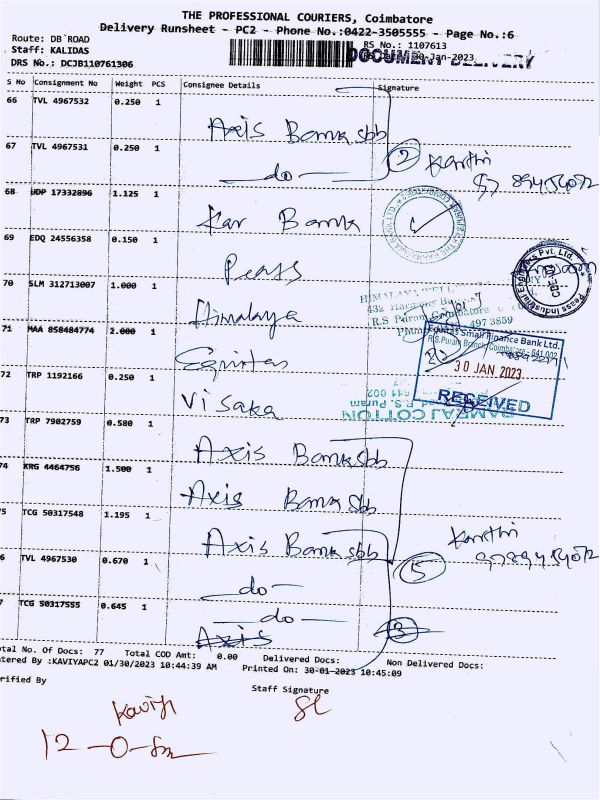 THE PROFESSIONAL COURIERS, Coimbatore
Delivery Runsheet - PC2 - Phone No.:0422-3505555 - Page No.:6
Route: DB ROAD
RS No.: 1107613
Staff: KALIDAS
30-Jan-2023
DOCUMENT DELIVERY
DRS No.: DCJB110761306
S No Consignment No Weight PCS Consignee Details Signature
66 TVL 4967532 0.250 1
Axis Bank sbb
67 TVL 4967531 0.250 1
do
2
68 UDP 17332896 1.125 1
Kar Bank
69 EDQ 24556358 0.150 1
Peass
Peass Industrial Engineers Pvt. Ltd.
70 SLM 312713007 1.000 1
Himalaya
HIMALAYA
R.S Puram
497 3859
71 MAA 858484774 2.000 1
Equitas
Equitas Small Finance Bank Ltd.
R.S.Puram Branch, Coimbatore - 641 002
30 JAN 2023
RECEIVED
72 TRP 1192166 0.250 1
Visaka
RAMRAJ COTTON
R.S. Puram
641 002
73 TRP 7902759 0.580 1
Axis Bank sbb
74 KRG 4464756 1.500 1
Axis Bank sbb
75 TCG 50317548 1.195 1
Axis Bank sbb
5
76 TVL 4967530 0.670 1
do
77 TCG 50317555 0.645 1
do
Axis
3
Total No. Of Docs: 77 Total COD Amt: 0.00 Delivered Docs: Non Delivered Docs:
Entered By :KAVIYAPC2 01/30/2023 10:44:39 AM Printed On: 30-01-2023 10:45:09
Verified By
Staff Signature